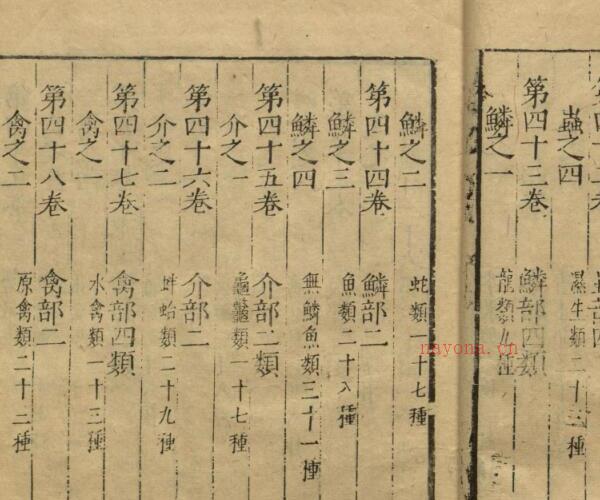 蟲之四 濕生類二十三種
第四十三卷 鱗部四類
鱗之一 龍類九種
鱗之二 蛇類一十七種
第四十四卷 鱗部二
鱗之三 魚類二十八種
鱗之四 無鱗魚類三十一種
第四十五卷 介部二類
介之一 龜鱉類一十七種
第四十六卷 介部二
介之二 蚌蛤類二十九種
第四十七卷 禽部四類
禽之一 水禽類一十三種
第四十八卷 禽部二
禽之二 原禽類二十二種
nayona.cn